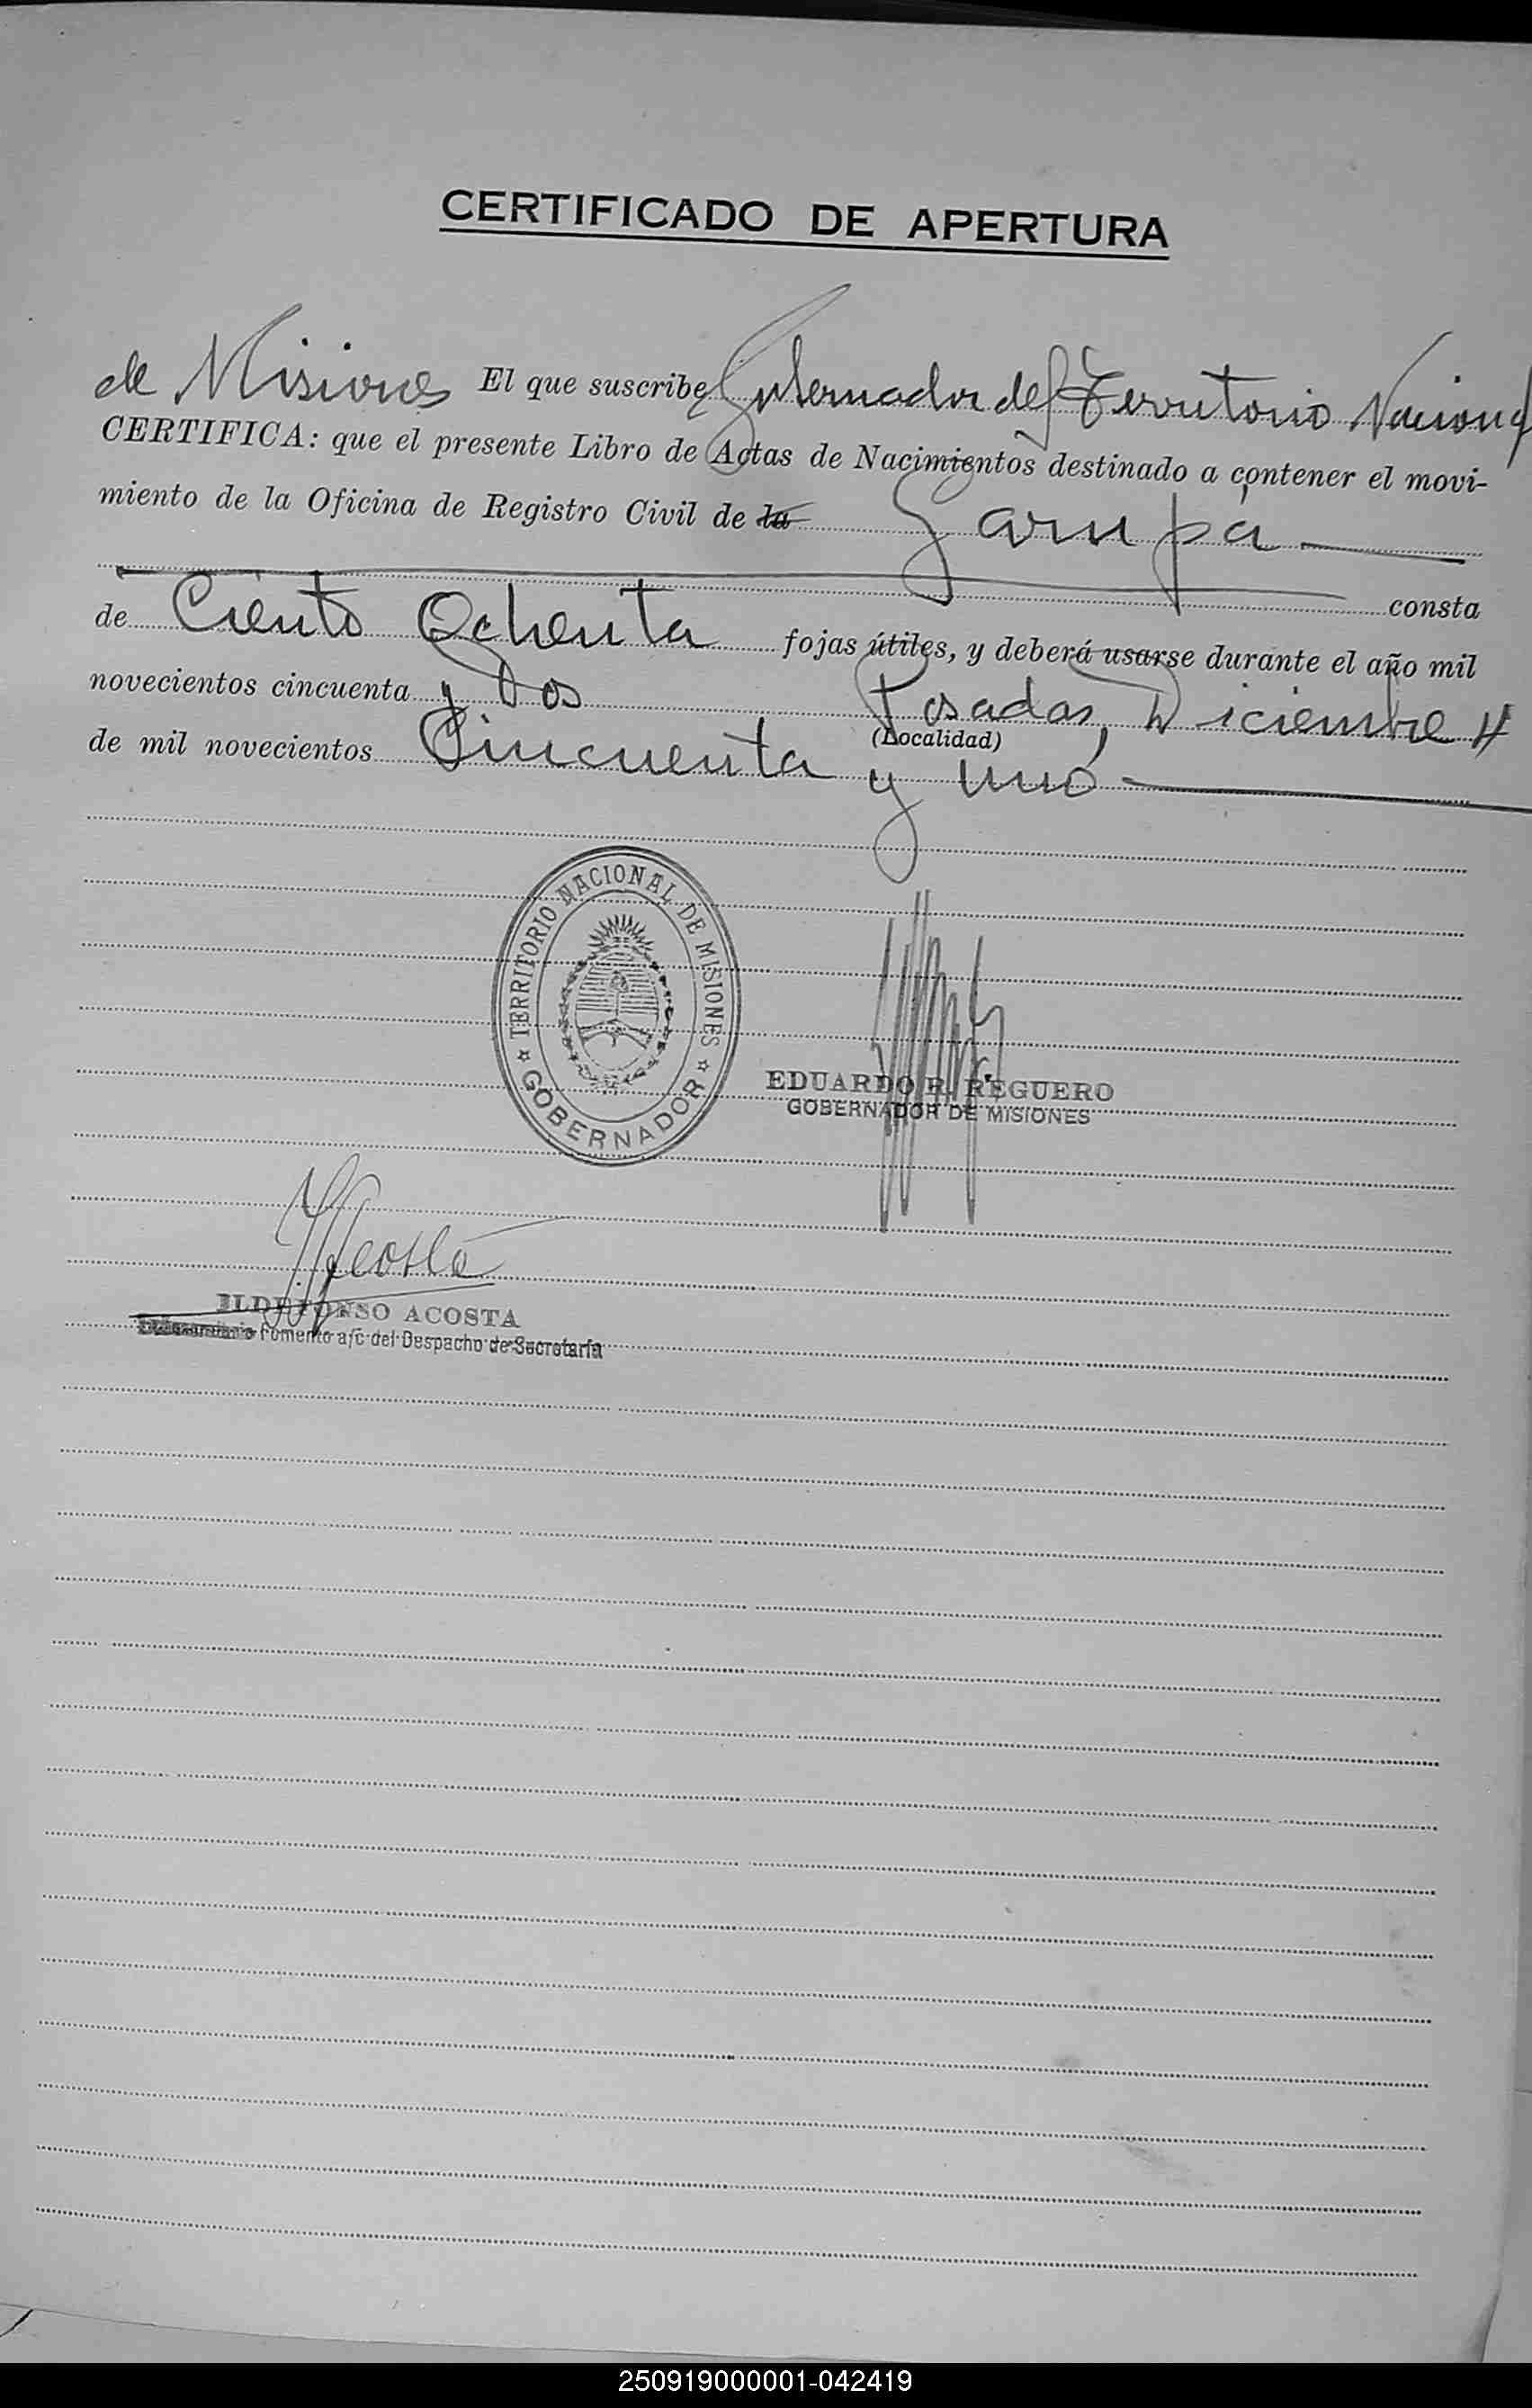 CERTIFICADO DE APERTURA
de Misiones El que suscribe Gobernador del Territorio Nacional
CERTIFICA: que el presente Libro de Actas de Nacimientos destinado a contener el movi-
miento de la Oficina de Registro Civil de la Garupá
consta
de Ciento Ochenta fojas útiles, y deberá usarse durante el año mil
novecientos cincuenta y Dos Posadas, Diciembre 4
(Localidad)
de mil novecientos Cincuenta y uno
TERRITORIO NACIONAL DE MISIONES
GOBERNADOR
EDUARDO REGUERO
GOBERNADOR DE MISIONES
Acosta
ILDEFONSO ACOSTA
Fomento a/c del Despacho de Secretaría
250919000001-042419